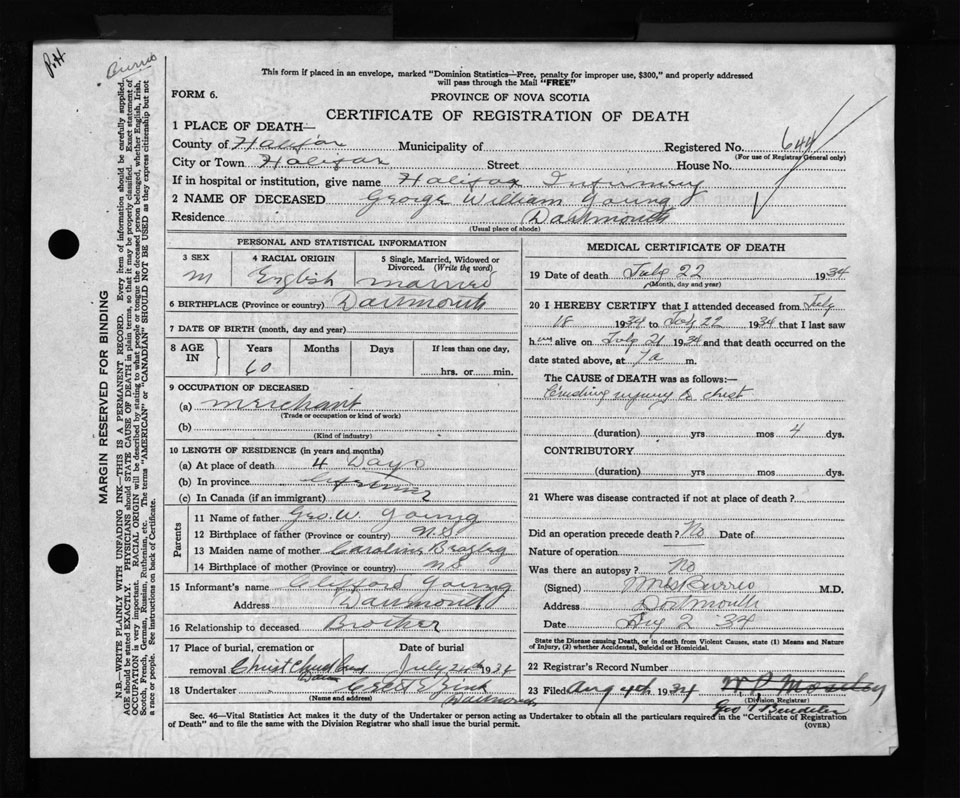 P.H.
Burris
This form if placed in an envelope, marked "Dominion Statistics—Free, penalty for improper use, $300," and properly addressed
will pass through the Mail "FREE"
FORM 6.
PROVINCE OF NOVA SCOTIA
CERTIFICATE OF REGISTRATION OF DEATH
1 PLACE OF DEATH—
County of Halifax Municipality of Registered No. 644
(For use of Registrar General only)
City or Town Halifax Street House No.
If in hospital or institution, give name Halifax Infirmary
2 NAME OF DECEASED George William Young
Residence Dartmouth
(Usual place of abode)
PERSONAL AND STATISTICAL INFORMATION
3 SEX 4 RACIAL ORIGIN 5 Single, Married, Widowed or
Divorced. (Write the word)
M English Married
6 BIRTHPLACE (Province or country) Dartmouth
7 DATE OF BIRTH (month, day and year)
8 AGE IN Years Months Days If less than one day,
60 hrs. or min.
9 OCCUPATION OF DECEASED
(a) Merchant
(Trade or occupation or kind of work)
(b)
(Kind of industry)
10 LENGTH OF RESIDENCE (in years and months)
(a) At place of death 4 Days
(b) In province Lifetime
(c) In Canada (if an immigrant)
Parents
11 Name of father Geo. W. Young
12 Birthplace of father (Province or country) N.S.
13 Maiden name of mother Caroline
14 Birthplace of mother (Province or country) N.S
15 Informant's name Clifford Young
Address Dartmouth
16 Relationship to deceased Brother
17 Place of burial, cremation or Date of burial
removal Christ Church July 24th 1934
18 Undertaker
(Name and address) Dartmouth
MEDICAL CERTIFICATE OF DEATH
19 Date of death July 22 1934
(Month, day and year)
20 I HEREBY CERTIFY that I attended deceased from July
18 1934 to July 22 1934 that I last saw
him alive on July 21 1934 and that death occurred on the
date stated above, at 7a m.
The CAUSE OF DEATH was as follows:—
Crushing injury to chest
(duration) yrs mos 4 dys.
CONTRIBUTORY
(duration) yrs mos dys.
21 Where was disease contracted if not at place of death?
Did an operation precede death? No Date of
Nature of operation
Was there an autopsy? No
(Signed) Burris M.D.
Address Dartmouth
Date Aug 2 '34
State the Disease causing Death, or in death from Violent Causes, state (1) Means and Nature
of Injury, (2) whether Accidental, Suicidal or Homicidal.
22 Registrar's Record Number
23 Filed Aug 4th 1934
(Division Registrar)
Sec. 46—Vital Statistics Act makes it the duty of the Undertaker or person acting as Undertaker to obtain all the particulars required in the "Certificate of Registration
of Death" and to file the same with the Division Registrar who shall issue the burial permit. (OVER)
MARGIN RESERVED FOR BINDING
N.B.—WRITE PLAINLY WITH UNFADING INK—THIS IS A PERMANENT RECORD. Every item of information should be carefully supplied.
AGE should be stated EXACTLY. PHYSICIANS should STATE CAUSE OF DEATH in plain terms, so that it may be properly classified. Exact statement of
OCCUPATION is very important. RACIAL ORIGIN will be described by stating to what people or tongue the deceased person belonged, whether English, Irish,
Scotch, French, German, Russian, Ruthenian, etc. The terms "AMERICAN" or "CANADIAN" SHOULD NOT BE USED as they express citizenship but not
a race or people. See instructions on back of Certificate.